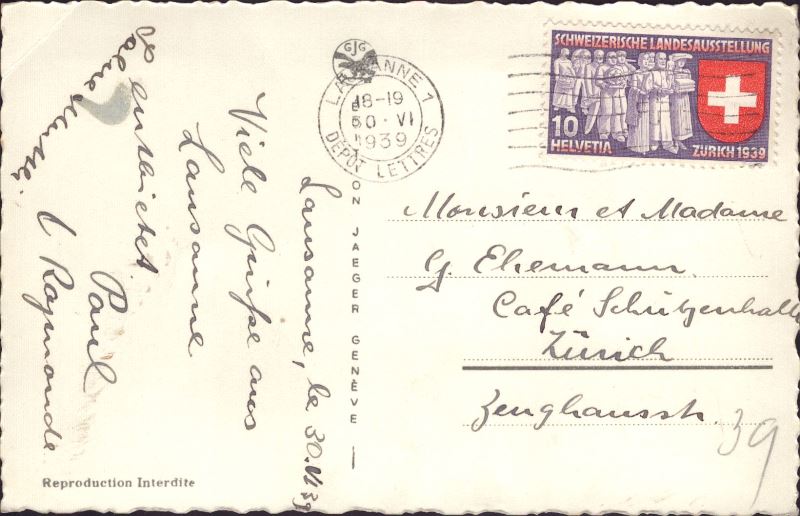 Lausanne, le 30.VI 39
Viele Grüsse aus
Lausanne
entbietet
Paul
Raymonde
GJG
LAUSANNE 1
18-19
30·VI
1939
DEPOT LETTRES
ON JAEGER GENÈVE
SCHWEIZERISCHE LANDESAUSSTELLUNG
10
HELVETIA
ZÜRICH 1939
Monsieur et Madame
G. Ehemann
Café Schützenhalle
Zürich
Zeughausstr.
39
Reproduction Interdite